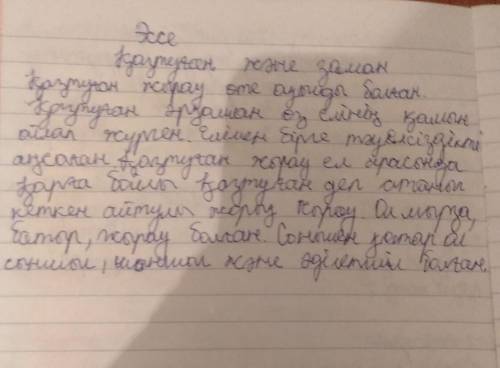 Эссе
Қазтуған және заман
Қазтуған жырау өте ақынды болған.
Қазтуған әрқашан өз елінің қамын
ойлап жүрген. Елімен бірге тәуелсіздікті
аңсаған Қазтуған жырау ел арасында
Қарға бойлы Қазтуған деп аталып
кеткен айтулы жорық жырау Ол мырза,
батыр, жырау болған. Сонымен қатар ол
сыншыл, шыншыл және әділетшіл болған.